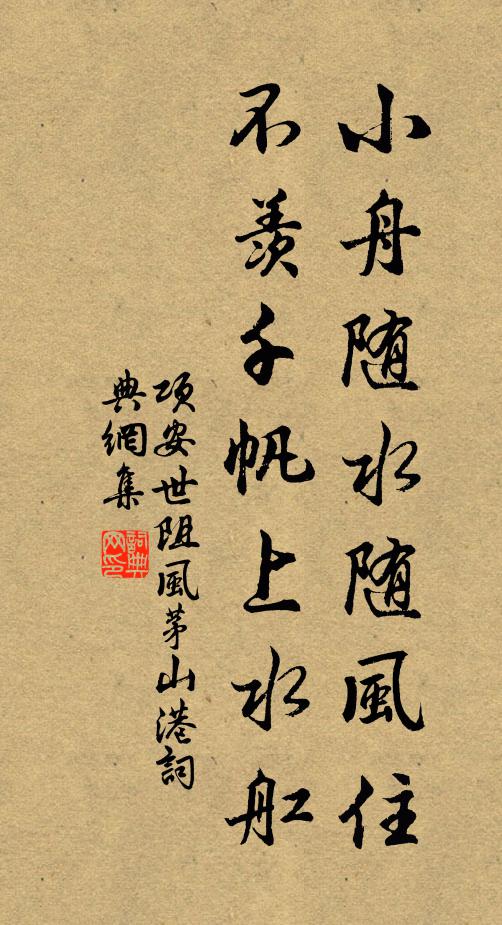 小舟随水随風住
不羨千帆上水舡
項安世阻風茅山港詞
典網集
詞典
网印